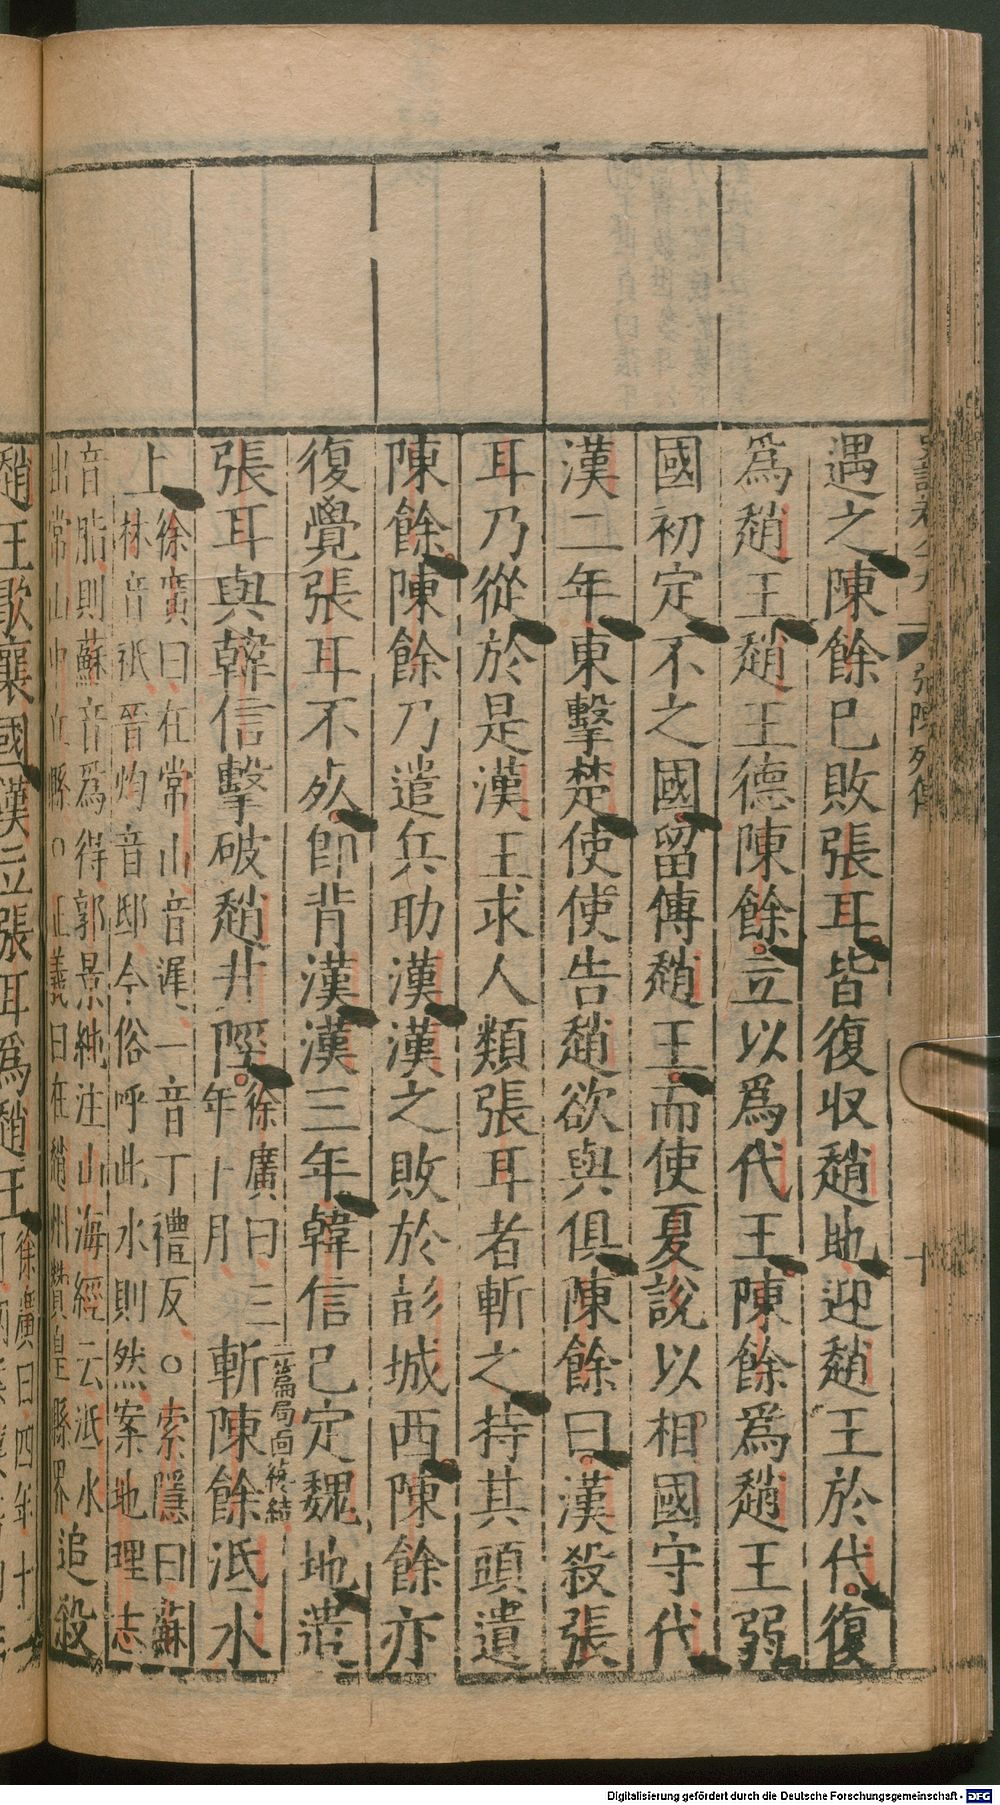 張陳列傳
十
遇之陳餘已敗張耳皆復收趙地迎趙王於代復
爲趙王趙王德陳餘立以爲代王陳餘爲趙王弱
國初定不之國留傅趙王而使夏說以相國守代
漢二年東擊楚使使告趙欲與俱陳餘曰漢殺張
耳乃從於是漢王求人類張耳者斬之持其頭遺
陳餘陳餘乃遣兵助漢漢之敗於彭城西陳餘亦
復覺張耳不死即背漢漢三年韓信已定魏地遣
張耳與韓信擊破趙井陘徐廣曰三年十月斬陳餘泜水
上徐廣曰在常山音遲一音丁禮反○索隱曰蘇
林音祇晉灼音邸今俗呼此水則然案地理志
音脂則蘇音爲得郭景純注山海經云泜水
出常山中丘縣○正義曰在趙州贊皇縣界追殺
趙王歇襄國漢立張耳爲趙王
Digitalisierung gefördert durch die Deutsche Forschungsgemeinschaft - DFG